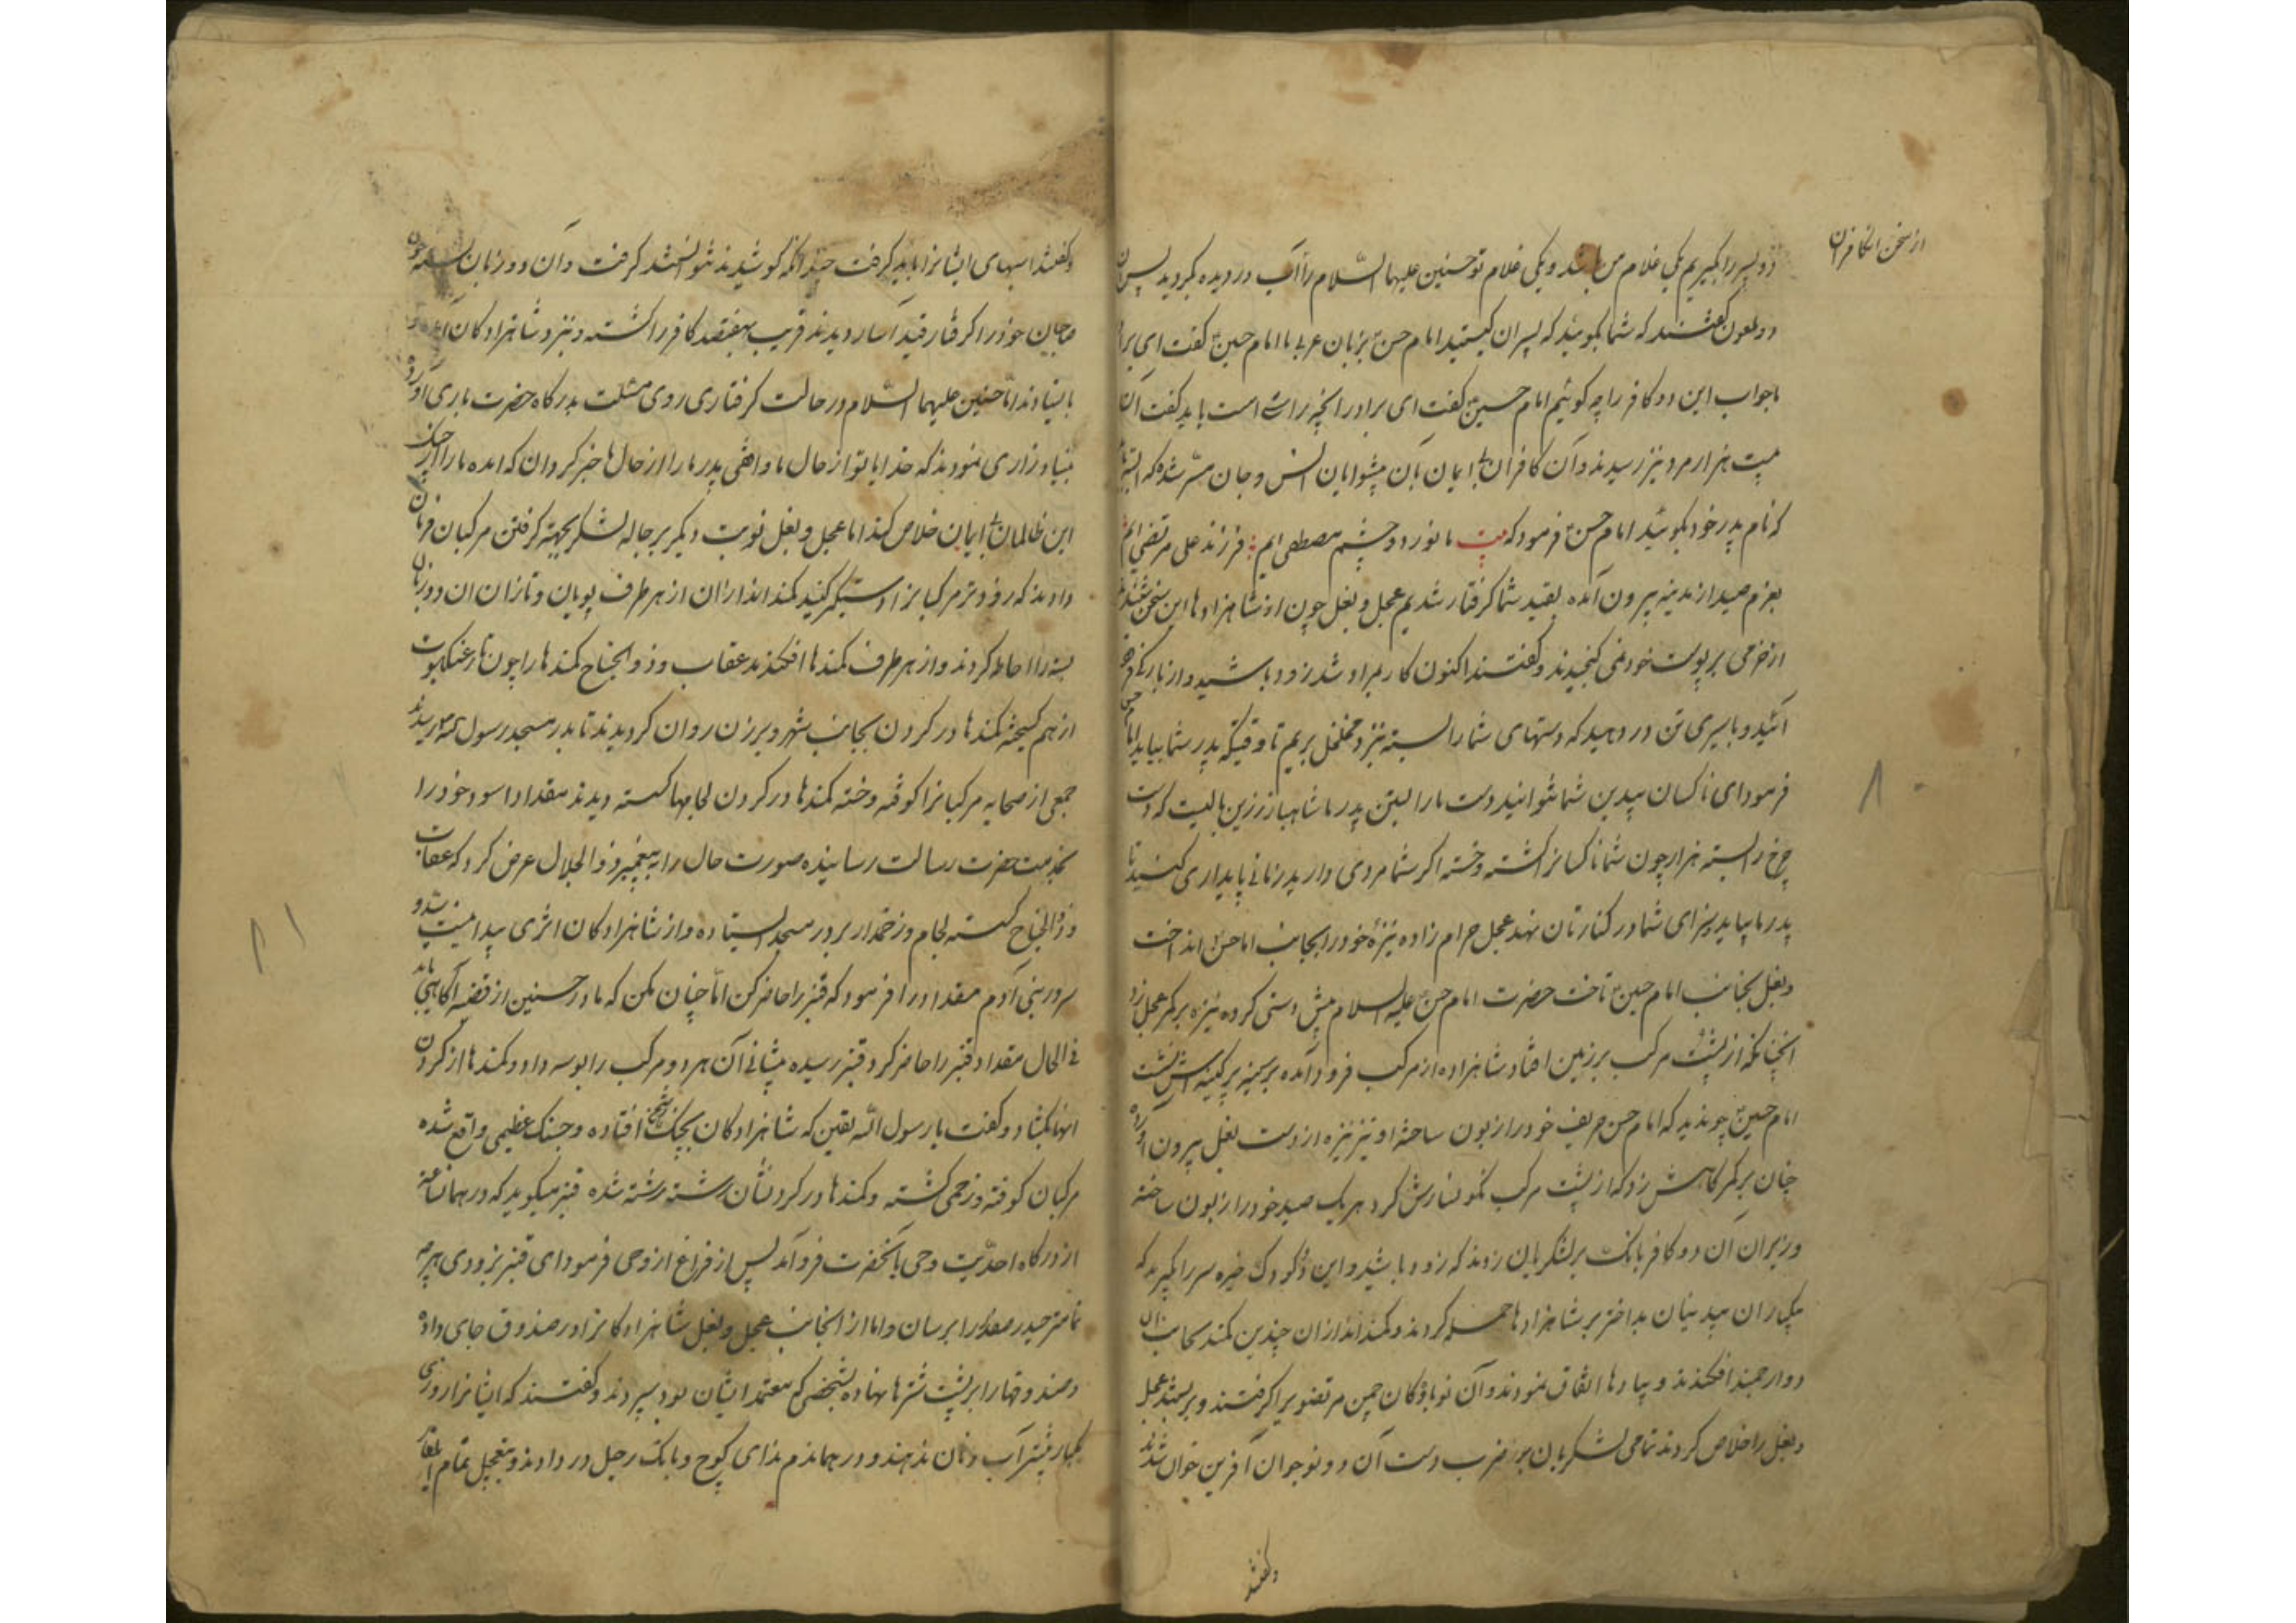 از سخن انکافران
دو پسر را بگیریم یکی غلام من باشد و یکی غلام تو حسنین علیهما السلام را آب در دیده بگردید پس آن
دو ملعون گفتند که شما بگویید که پسران کیستید امام حسن بزبان عربی با امام حسین گفت ای برادر
ما جواب این دو کافر را چه گوئیم امام حسین گفت ای برادر آنچه راست است باید گفت
بیست هزار مرد نیز رسیدند و آن کافران بی ایمان بآن پیشوایان انس و جان مسر شده که البته
که نام پدر خود بگوئید امام حسن فرمود که بیت ما نور دو چشم مصطفی ایم فرزند علی مرتضی ایم
بعزم صید از مدینه بیرون آمده بقید شما گرفتار شدیم عجل و بغل چون از شاهزاده ها این سخن شنیدند
از خرمی بر پوست خود نمی گنجیدند و گفتند اکنون کار بمراد شد زود باشید و از بارگی فرود
آئید و باسیری تن در دهید که دستهای شما را بسته نزد مخلخل بریم تا وقتیکه پدر شما بیاید امام حسن
فرمود ای ناکسان بیدین شما نتوانید دست ما را بستن پدر ما شاهباز زرین بالیست که دست
چرخ را بسته هزار چون شما ناکسانرا کشته و خسته اگر شما مردی دارید زمانی پایداری کنید تا
پدر ما بیاید سزای شما در کنارتان نهد عجل حرام زاده نیزه خود را بجانب امام حسن انداخت
و بغل بجانب امام حسین تاخت حضرت امام حسن علیه السلام پیش دستی کرده نیزه بر کمر عجل زد
انچنانکه از پشت مرکب بر زمین افتاد شاهزاده از مرکب فرود آمده بر سینه پر کینه اش نشست
امام حسین چو ندید که امام حسن حریف خود را زبون ساخته او نیز نیزه از دست بغل بیرون آورده
چنان بر کمرگاهش زد که از پشت مرکب نگونسارش کرد هر یک صید خود را زبون ساخته
وزیران آن دو کافر بانک بر لشکریان زدند که زود باشید و این دو کودک خیره سر را بگیرید که
یکبار آن بیدینان بداختر بر شاهزاده ها حمله کردند و کمنداندازان چندین کمند بجانب آن
دو ارجمند افکندند و پیاده ها اتفاق نمودند و آن نوباوگان چمن مرتضوی را گرفتند و بربستند عجل
و بغل را خلاص کردند تمامی لشکریان بر ضرب دست آن دو نوجوان آفرین خوان شدند
و گفتند
و گفتند اسبهای ایشانرا باید گرفت چندانکه کوشیدند نتوانستند گرفت و آن دو زبان بسته چون
صاحبان خود را گرفتار قید آسار دیدند قریب بهفتصد کافر را کشته و نیز و شاهزادگان آمده
بایستادند اما حسنین علیهما السلام در حالت گرفتاری روی مسئلت بدرگاه حضرت باری آورده
بنیاد زاری نمودند که خدایا تو از حال ما واقفی پدر ما را از حال ما خبر گردان که آمده ما را از چنگ
این ظالمان بی ایمان خلاص کند اما عجل و بغل نوبت دیگر بر جاله لشکر بجهة گرفتن مرکبان فرمان
دادند که زودتر مرکبانرا دستگیر کنید کمنداندازان از هر طرف پویان و تازان آن دو زبان
بسته را احاطه کردند و از هر طرف کمندها افکندند عقاب و ذوالجناح کمندها را چون تار عنکبوت
از هم گسیخته کمندها در گردن بجانب شهر و برزن روان گردیدند تا بدر مسجد رسول الله رسیدند
جمعی از صحابه مرکبانرا کوفته و خسته کمندها در گردن لجامها گسسته دیدند مقداد اسود خود را
بخدمت حضرت رسالت رسانیده صورت حال را به پیغمبر ذوالجلال عرض کرد که عقاب
و ذوالجناح گسسته لجام و زخمدار بر در مسجد ایستاده و از شاهزادگان اثری پیدا نیست
سرور بنی آدم مقداد را فرمود که قنبر را حاضر کن اما چنان مکن که مادر حسنین از قضیه آگاهی یابد
فی الحال مقداد قنبر را حاضر کرد قنبر رسیده پیشانی آن هر دو مرکب را بوسه داد و کمندها از گردن
آنها بگشاد و گفت یا رسول الله یقین که شاهزادگان بجنگ دشمن افتاده و جنگ عظیمی واقع شده
مرکبان کوفته و زخمی گشته و کمندها در گردنشان رشته رشته شده قنبر میگوید که در همان ساعت
از درگاه احدیت وحی بآنحضرت فرو آمد پس از فراغ از وحی فرمود ای قنبر بزودی هر چه
تمامتر حیدر صفدر را برسان و اما از انجانب عجل و بغل شاهزادگانرا در صندوق جای داده
و صندوقها را بر پشت شترها نهاده بشخصی که معتمد ایشان بود سپردند و گفتند که ایشانرا روزی
یکبار بیشتر آب و نان ندهند و در همان دم ندای کوچ و بانک رحیل در دادند و بتعجیل تمام